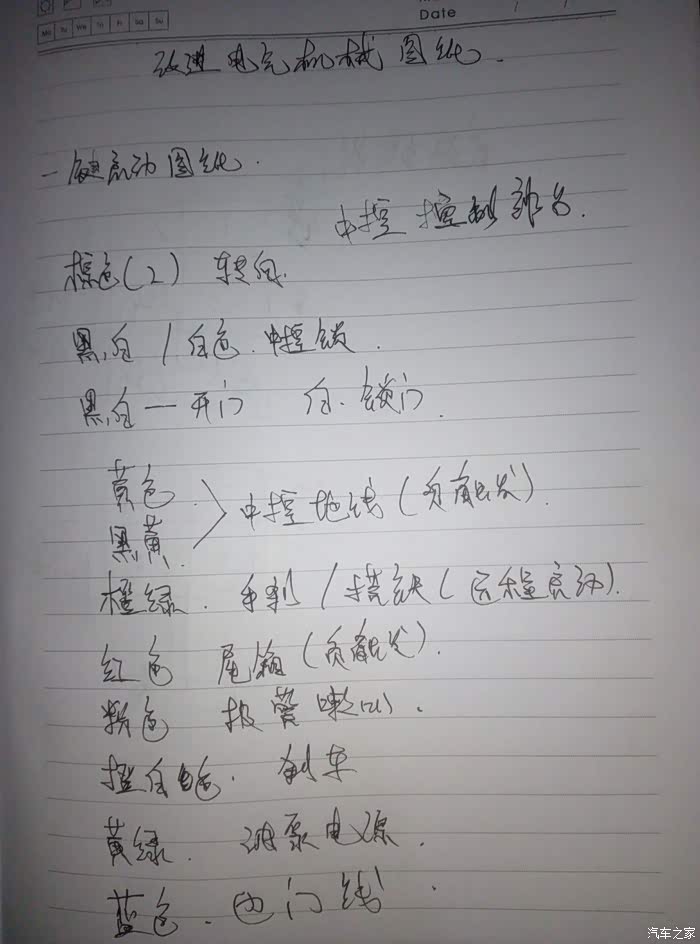 Mo Tu We Th Fr Sa Su
Date / /
改进电气机械图纸.
一键启动图纸.
中控 控制部分.
棕色(2) 转向.
黑白 / 白色. 中控锁.
黑白一开门 白. 锁门.
黄色
黑黄
中控地线(负触发).
橙绿. 手刹 / 搭铁(远程启动).
红色 尾箱(负触发).
粉色 报警喇叭.
橙白色. 刹车
黄绿. 油泵电源.
蓝色. 门线.
汽车之家